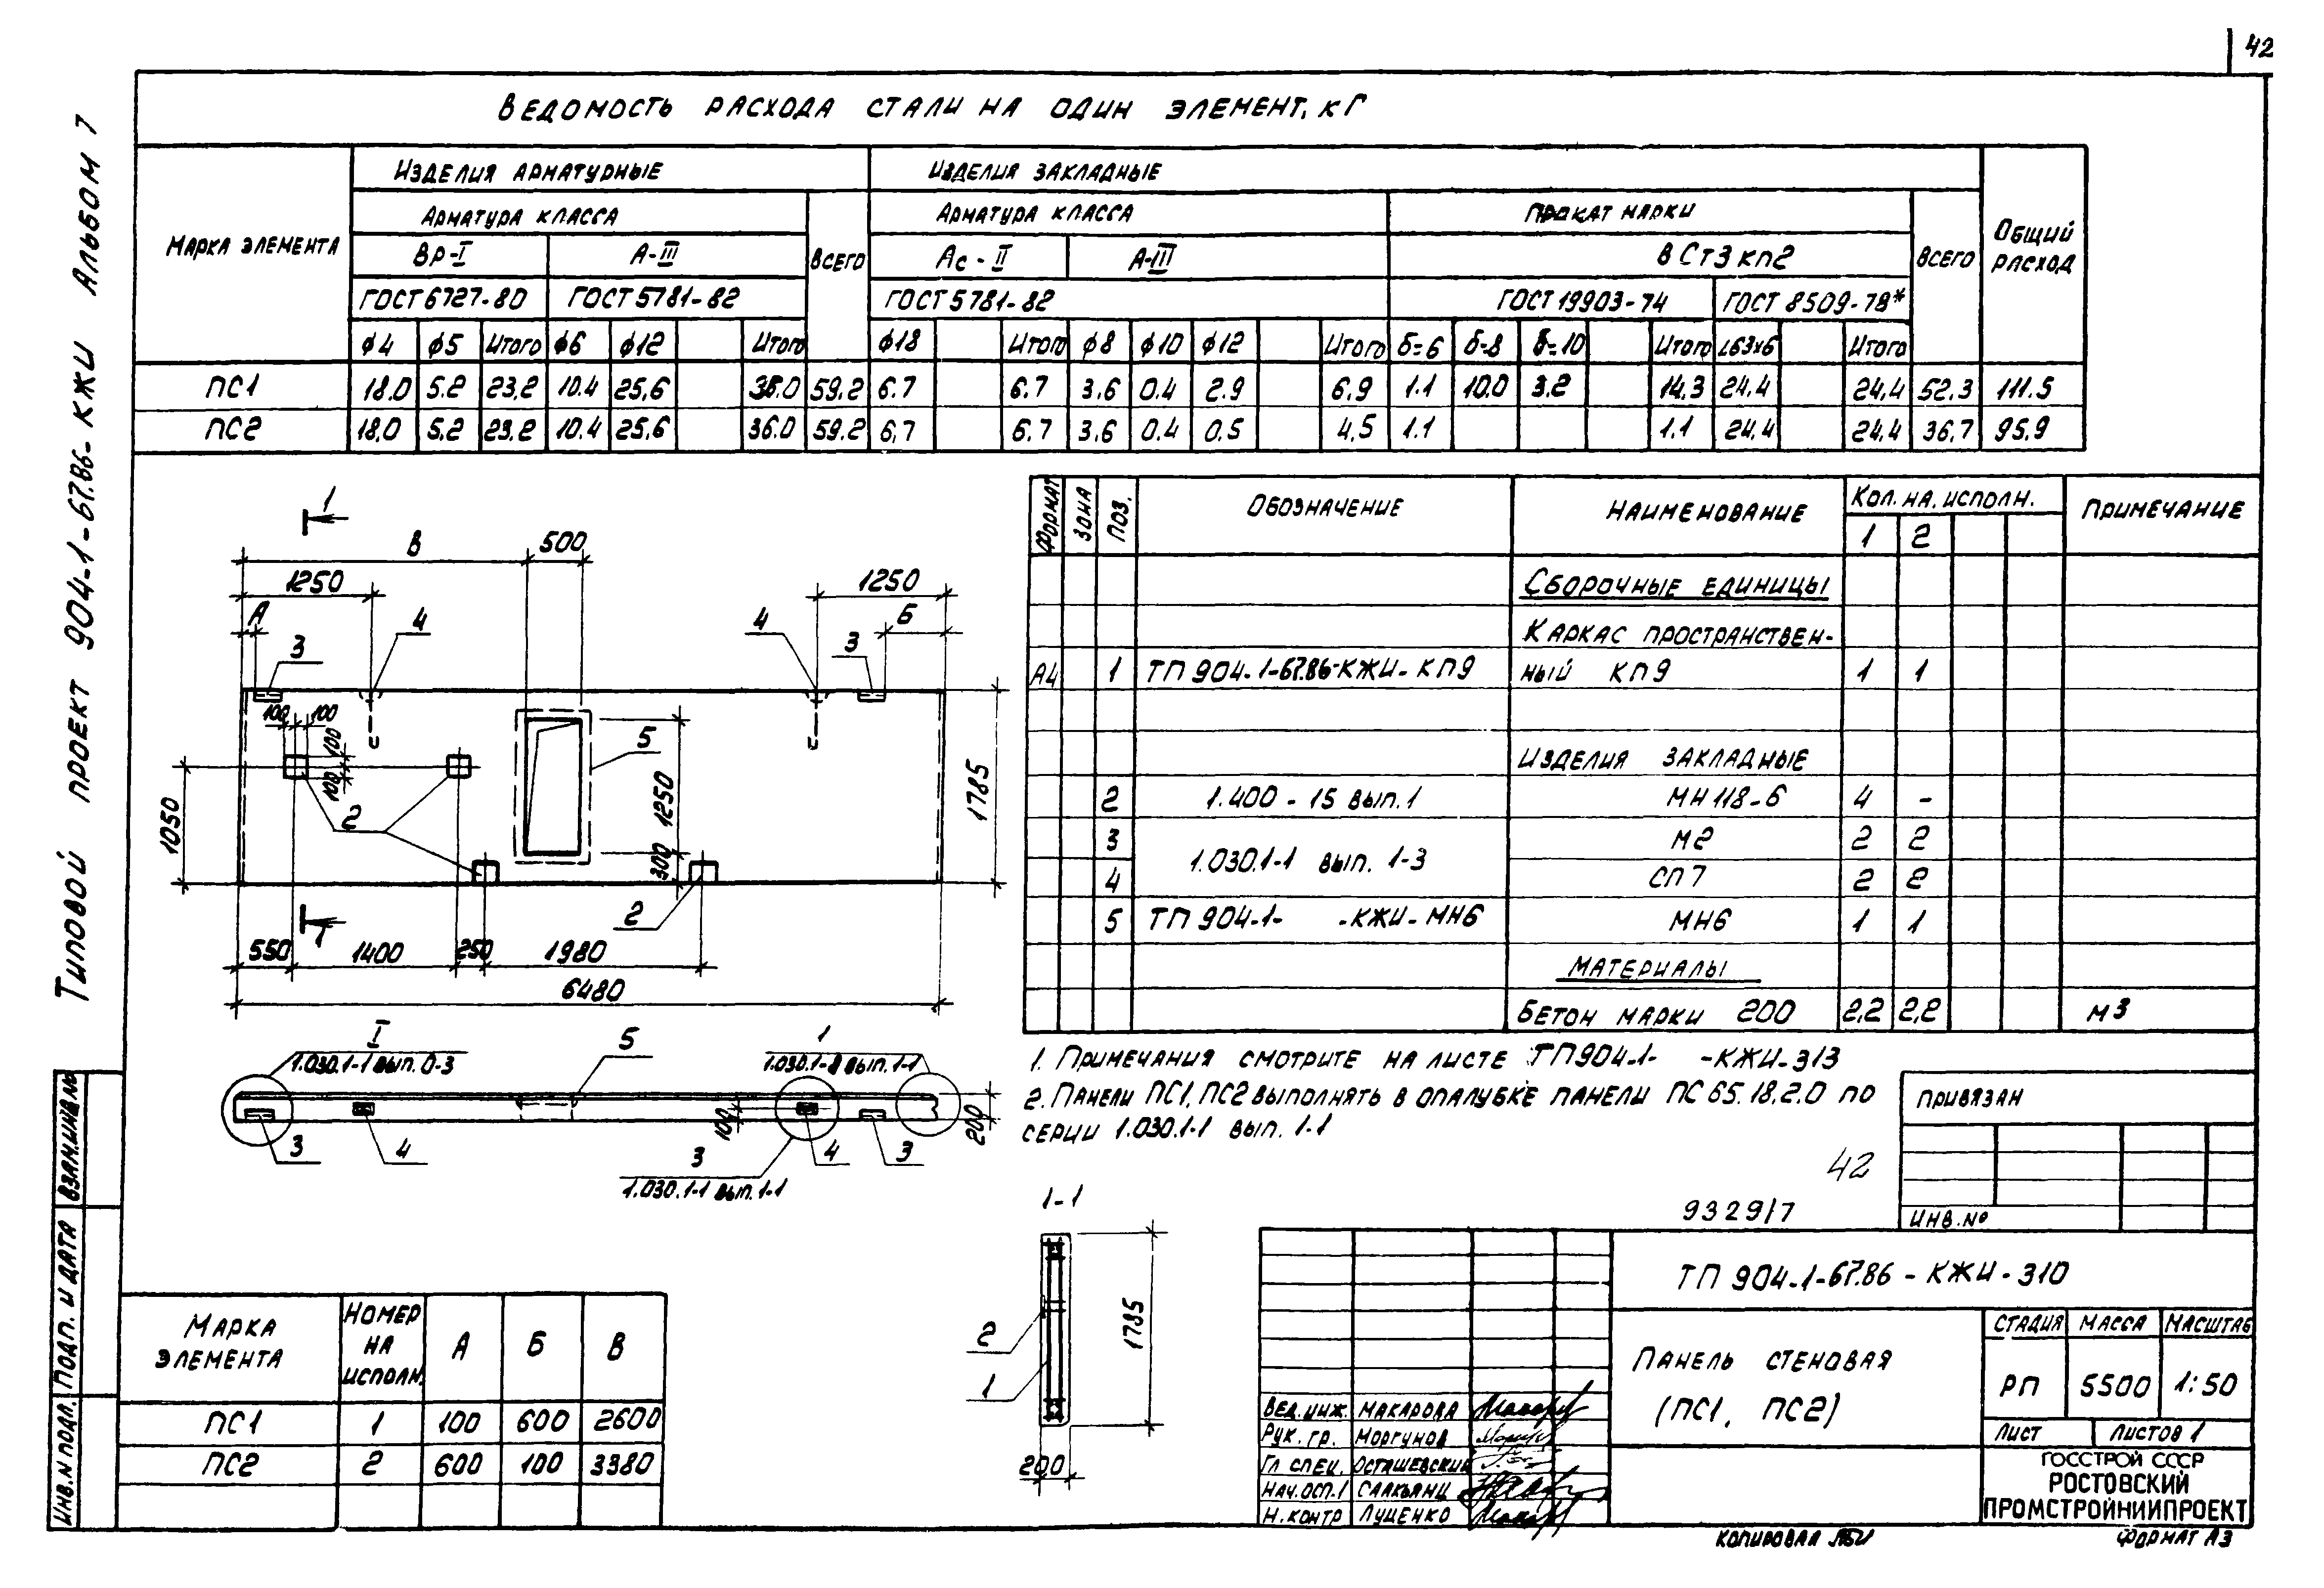 42
Типовой проект 904-1-67.86-КЖИ Альбом 7
Ведомость расхода стали на один элемент, кг
Марка элемента
Изделия арматурные
Изделия закладные
Общий расход
Арматура класса
Всего
Арматура класса
Прокат марки
Всего
Вр-I
А-III
Ас-II
А-III
ВСт3кп2
ГОСТ 6727-80
ГОСТ 5781-82
ГОСТ 5781-82
ГОСТ 19903-74
ГОСТ 8509-78*
ф4 ф5 Итого ф6 ф12 Итого ф18 Итого ф8 ф10 ф12 Итого δ=6 δ=8 δ=10 Итого L63х6 Итого
ПС1 18.0 5.2 23,2 10.4 25,6 36.0 59.2 6.7 6.7 3.6 0.4 2.9 6,9 1.1 10.0 3.2 14,3 24,4 24,4 52.3 111.5
ПС2 18,0 5.2 23.2 10.4 25,6 36.0 59.2 6,7 6.7 3.6 0.4 0.5 4,5 1.1 1.1 24,4 24,4 36,7 95.9
1
В 500
1250 1250
А 4 4 Б
3 3
100 100
100
100
5
1050
2
1250
300
1785
1
2
550 1400 250 1980
6480
I 5 1
1.030.1-1 вып. 0-3
1.030.1-1 вып. 1-1
100 200
3 4 3 4 3
1.030.1-1 вып. 1-1
Формат Зона Поз. Обозначение Наименование Кол. на исполн. Примечание
1 2
Сборочные единицы
Каркас пространствен-
А4 1 ТП 904-1-67.86-КЖИ-КП9 ный КП9 1 1
Изделия закладные
2 1.400-15 вып.1 МН118-6 4 -
3 М2 2 2
1.030.1-1 вып. 1-3
4 СП7 2 2
5 ТП 904-1- -КЖИ-МН6 МН6 1 1
Материалы
Бетон марки 200 2,2 2,2 м3
1. Примечания смотрите на листе ТП904-1- -КЖИ-313
2. Панели ПС1, ПС2 выполнять в опалубке панели ПС 65.18.2.0 по
серии 1.030.1-1 вып. 1-1
42
9329/7
Привязан
Инв.№
1-1
2
1
1785
200
Марка элемента
Номер на исполн.
А Б В
ПС1 1 100 600 2600
ПС2 2 600 100 3380
Инв.N подл. Подп. и дата Взам.инв.№
ТП 904-1-67.86-КЖИ-310
Панель стеновая
(ПС1, ПС2)
Стадия Масса Масштаб
РП 5500 1:50
Лист Листов 1
Госстрой СССР
РОСТОВСКИЙ
ПРОМСТРОЙНИИПРОЕКТ
Вед. инж. Макарова
Рук. гр. Моргунов
Гл. спец. Осташевский
Нач. осп.1 Саакьянц
Н. контр Луценко
Копировал
Формат А3